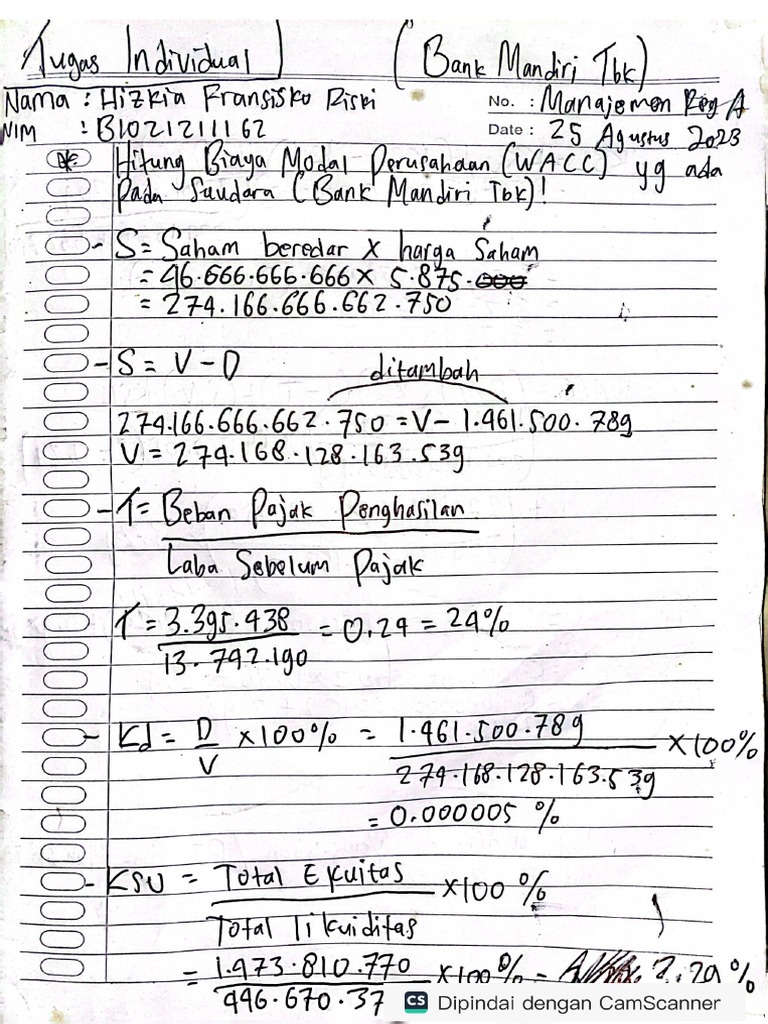 Tugas Individual (Bank Mandiri Tbk)
Nama : Hizkia Fransisko Riski No. : Manajemen Reg A
NIM : B1021211162 Date : 25 Agustus 2023
Hitung Biaya Modal Perusahaan (WACC) yg ada
Pada Saudara (Bank Mandiri Tbk)!
- S = Saham beredar x harga Saham
= 46.666.666.666 x 5.875.000
= 274.166.666.662.750
- S = V - D ditambah
274.166.666.662.750 = V - 1.461.500.789
V = 274.168.128.163.539
- T = Beban Pajak Penghasilan
Laba Sebelum Pajak
T = 3.395.438 = 0.24 = 24%
13.742.190
- Kd = D x 100% = 1.461.500.789 x 100%
V 274.168.128.163.539
= 0.000005 %
- KSU = Total Ekuitas x 100 %
Total likuiditas
= 1.473.810.770 x 100% =
446.670.37
CS Dipindai dengan CamScanner